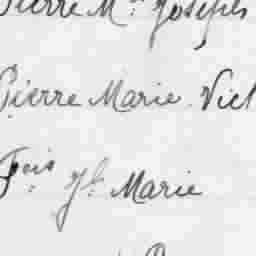 Pierre M. Joseph
Pierre Marie Vict
Fcis Yh. Marie